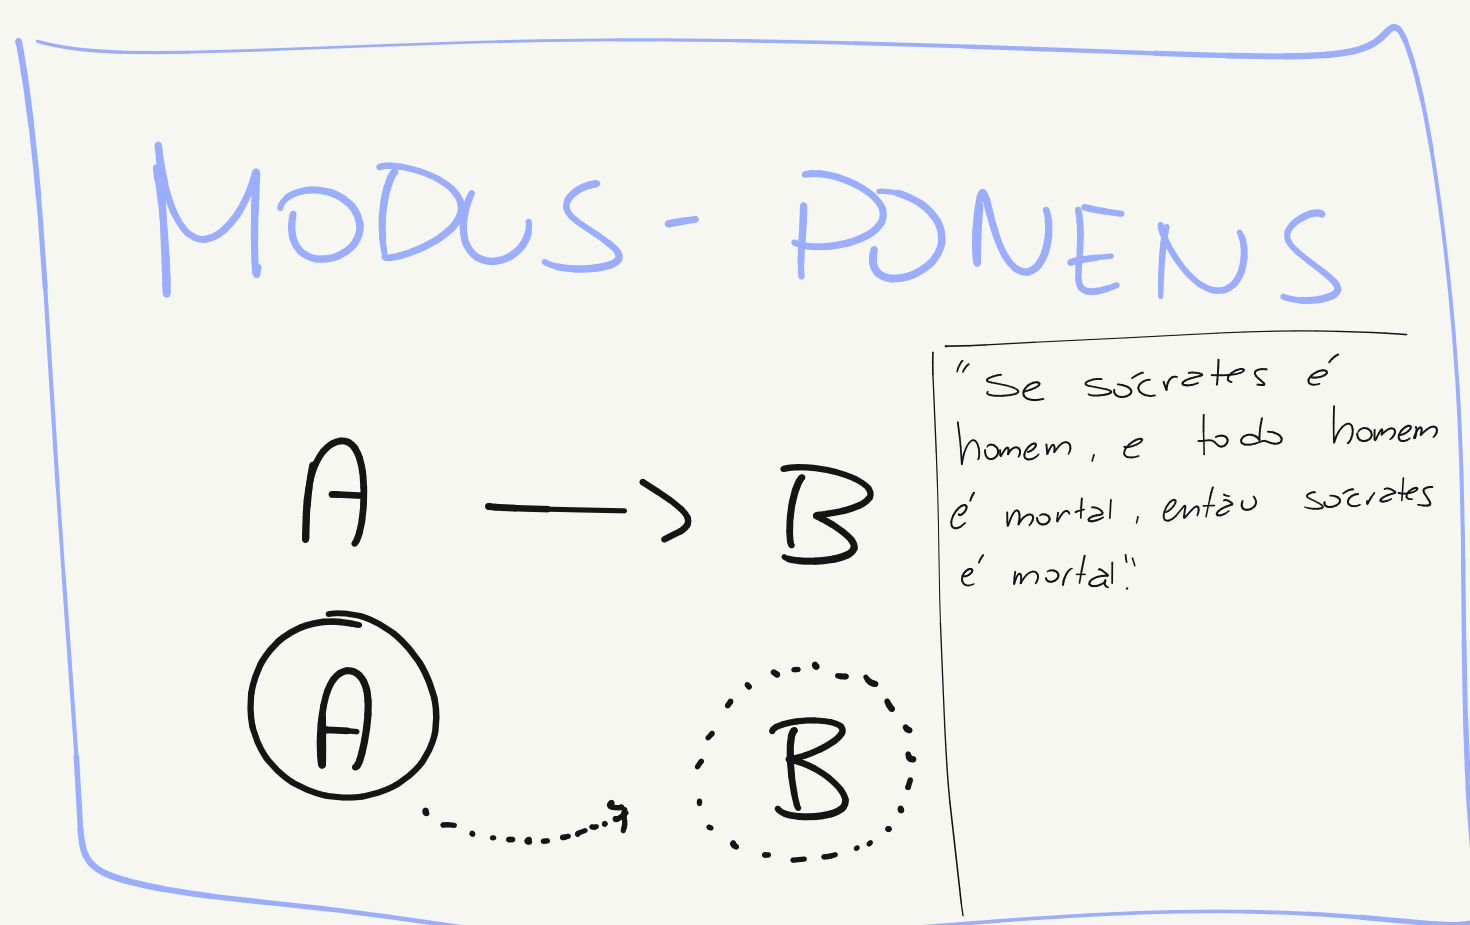 MODUS - PONENS
A → B
A B
"Se sócrates é
homem, e todo homem
é mortal, então sócrates
é mortal".